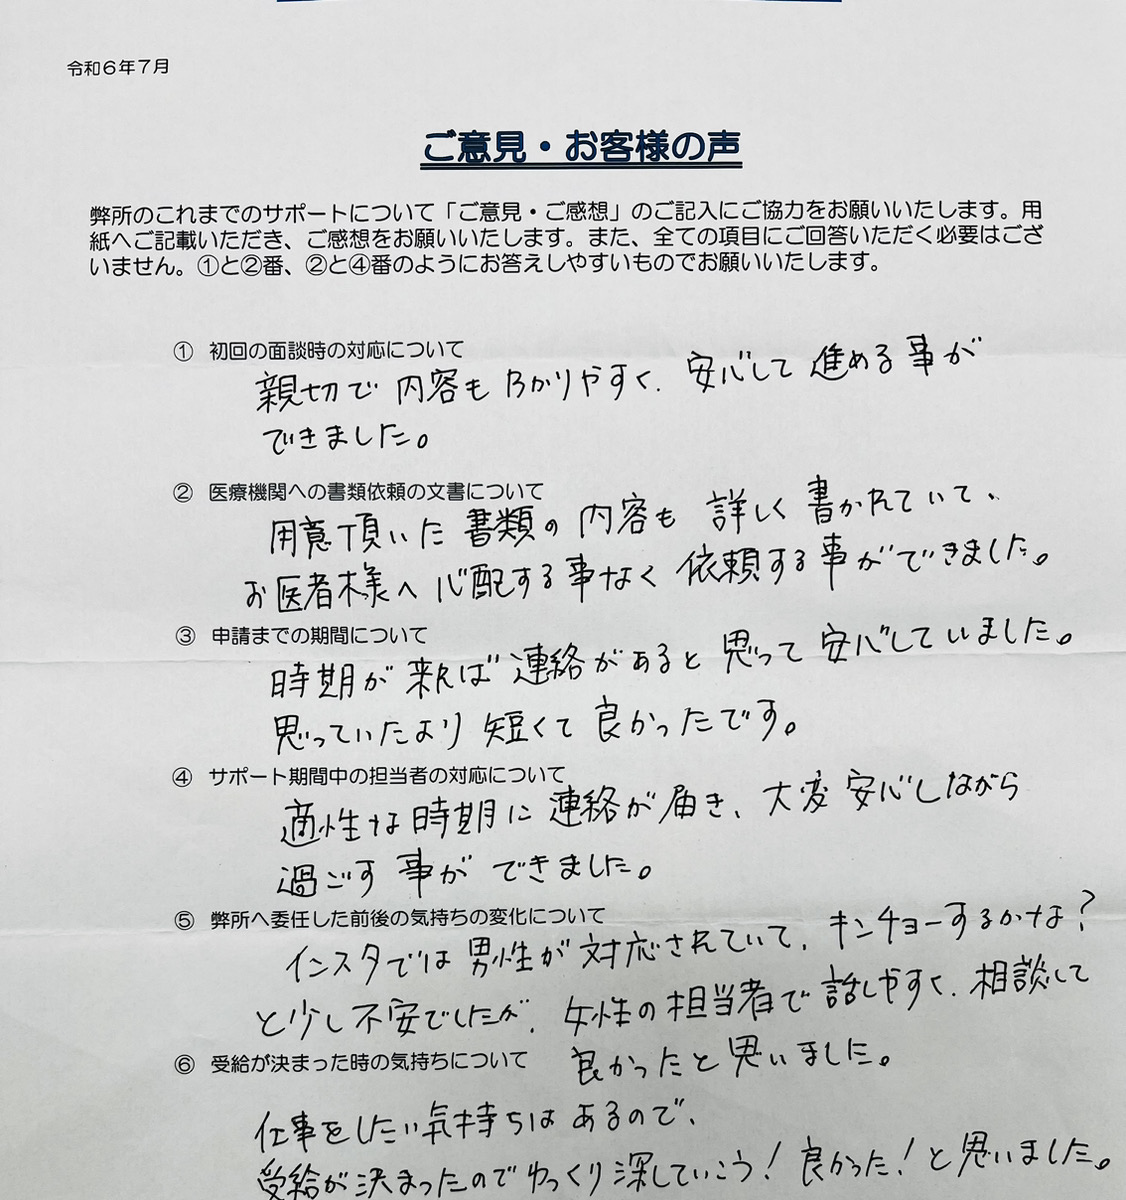 令和6年7月
ご意見・お客様の声
弊所のこれまでのサポートについて「ご意見・ご感想」のご記入にご協力をお願いいたします。用
紙へご記載いただき、ご感想をお願いいたします。また、全ての項目にご回答いただく必要はござ
いません。①と②番、②と④番のようにお答えしやすいものでお願いいたします。
① 初回の面談時の対応について
親切で内容もわかりやすく、安心して進める事が
できました。
② 医療機関への書類依頼の文書について
用意頂いた書類の内容も詳しく書かれていて、
お医者様へ心配する事なく依頼する事ができました。
③ 申請までの期間について
時期が来れば連絡があると思って安心していました。
思っていたより短くて良かったです。
④ サポート期間中の担当者の対応について
適性な時期に連絡が届き、大変安心しながら
過ごす事ができました。
⑤ 弊所へ委任した前後の気持ちの変化について
インスタでは男性が対応されていて、キンチョーするかな?
と少し不安でしたが、女性の担当者で話しやすく、相談して
良かったと思いました。
⑥ 受給が決まった時の気持ちについて
仕事をしたい気持ちはあるので、
受給が決まったのでゆっくり深していこう!良かった!と思いました。